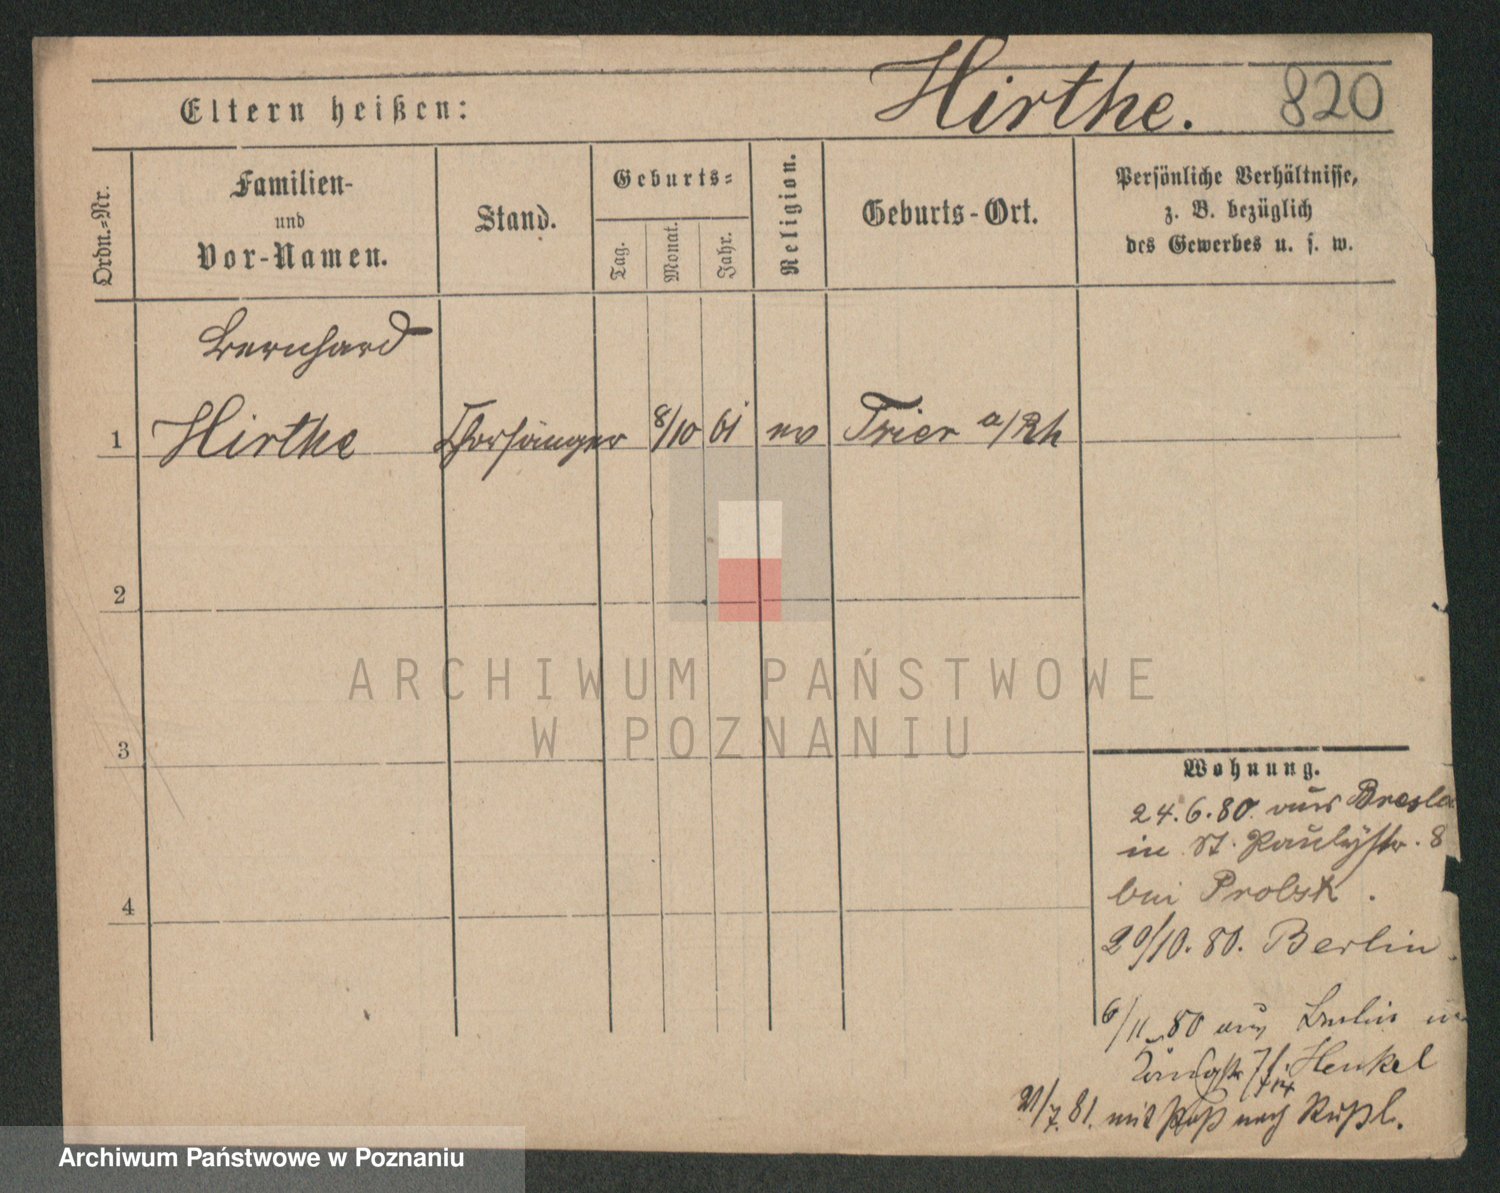 Hirthe. 820
Eltern heißen:
Ordn.-Nr.
Familien-
und
Vor-Namen.
Stand.
Geburts-
Tag.
Monat.
Jahr.
Religion.
Geburts-Ort.
Persönliche Verhältnisse,
z. B. bezüglich
des Gewerbes u. s. w.
Bernhard
1 Hirthe 8/10 61 ev Trier a/Rh
2
3
4
Wohnung.
24.6.80. aus Bresla
in St. Paulystr. 8
bei Probst.
29/10. 80. Berlin.
6/11 80 aus Berlin
Henkel
21/7. 81. mit Paß nach Rußl.
ARCHIWUM PAŃSTWOWE
W POZNANIU
Archiwum Państwowe w Poznaniu